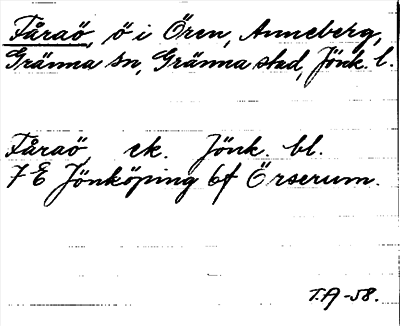 Fåraö, ö i Ören, Anneberg,
Gränna sn, Gränna stad, Jönk. l.
Fåraö ek. Jönk. bl.
7 E Jönköping 6f Örserum.
T.A -58.